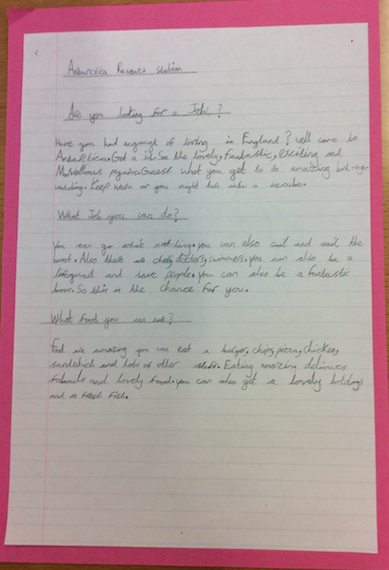 Antarctica Research Station
Are you looking for a Job?
Have you had enough of living in England? well come to
Antarctica. Get a See the lovely, fantastic, exciting and
Marvellous penguins. Guess what you get to so amazing
watching. Keep warm or you might turn into a
What Job you can do?
You can go whale watching. you can also and sail the
boat. Also there are chefs, doctors, swimmers. you can also be a
lifeguard and save people. you can also be a fantastic
So this is the chance for you.
What food you can eat?
food are amazing you can eat a burger, chips, pizza, chicken,
sandwhich and lots of other stuff. Eating amazing
and lovely food. you can also get a lovely hotdogs
and a fresh fish.